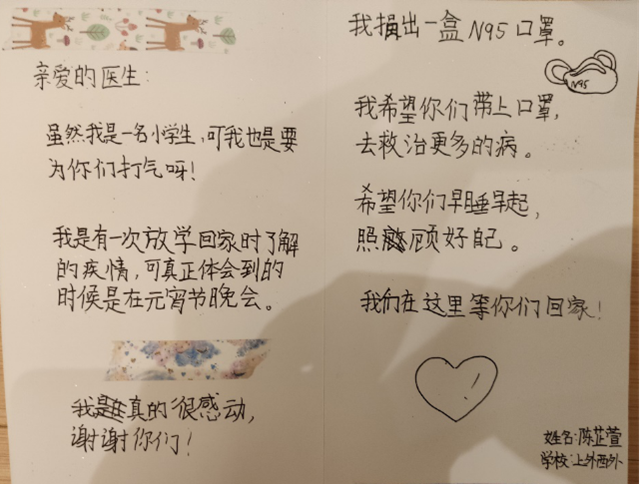 亲爱的医生：
虽然我是一名小学生，可我也是要
为你们打气呀！
我是有一次放学回家时了解
的疾情，可真正体会到的
时候是在元宵节晚会。
我是真的很感动，
谢谢你们！
我捐出一盒N95口罩。
N95
我希望你们带上口罩，
去救治更多的病。
希望你们早睡早起，
照顾好自己。
我们在这里等你们回家！
姓名：陈芷萱
学校：上外西外